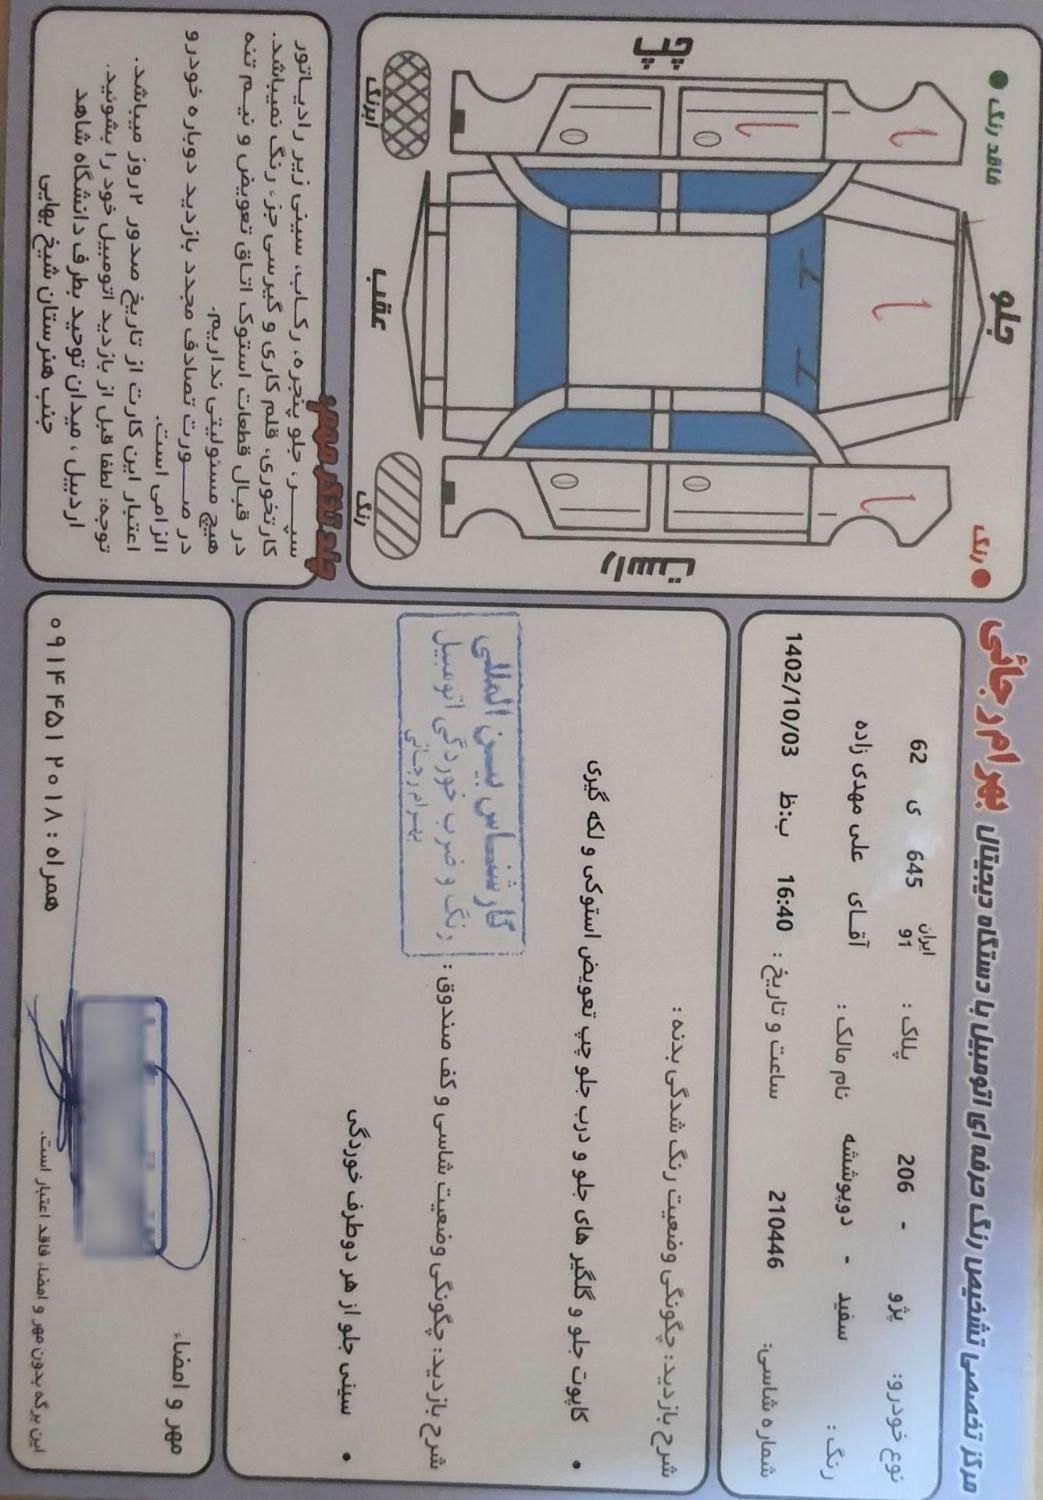 مرکز تخصصی تشخیص رنگ حرفه ای اتومبیل با دستگاه دیجیتال بهرام رجائی
نوع خودرو: پژو - 206 پلاک : ایران 91 645 ی 62
رنگ : سفید - دوپوششه نام مالک : آقای علی مهدی زاده
شماره شاسی: 210446 ساعت و تاریخ : 16:40 ب:ظ 1402/10/03
شرح بازدید: چگونگی وضعیت رنگ شدگی بدنه :
• کاپوت جلو و گلگیر های جلو و درب جلو چپ تعویض استوکی و لکه گیری
شرح بازدید: چگونگی وضعیت شاسی و کف صندوق :
• سینی جلو از هر دوطرف خوردگی
کارشناس بین المللی
رنگ و ضرب خوردگی اتومبیل
بهرام رجائی
مهر و امضاء
این برگه بدون مهر و امضاء فاقد اعتبار است.
همراه : ۰۹۱۴۴۵۱۲۰۱۸
رنگ
جلو
فاقد رنگ
راست
چپ
عقب
رنگ
ابرنگ
چند تذکر مهم:
سپـــر، جلو پنجره، رکـاب، سینی زیر رادیـاتور
کارتخوری، قلم کاری و گیرسی جزء رنگ نمیباشد.
در قبال قطعات استوک اتـاق تعویض و نیـم تنه
هیچ مسئولیتی نداریم.
در صـــورت تصادف مجدد بازدید دوباره خودرو
الزامی است.
اعتبار این کارت از تاریخ صدور ۲ روز میباشد.
توجه: لطفا قبل از بازدید اتومبیل خود را بشوئید.
اردبیل ، میدان توحید بطرف دانشگاه شاهد
جنب هنرستان شیخ بهایی